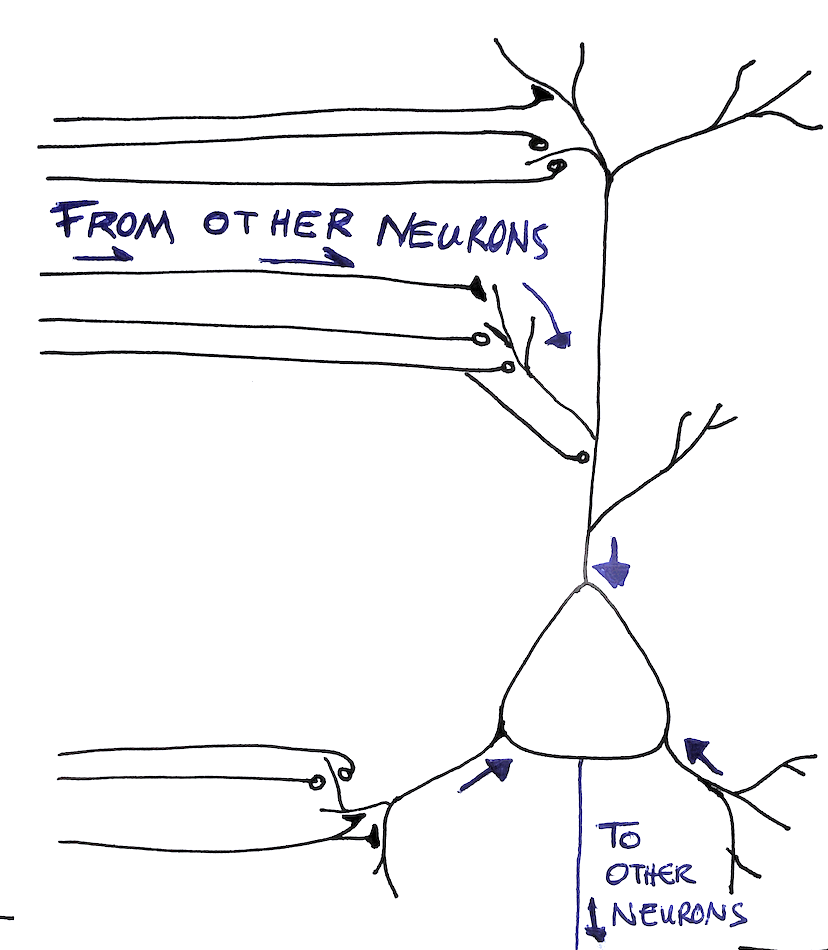 FROM OTHER NEURONS
TO
OTHER
NEURONS